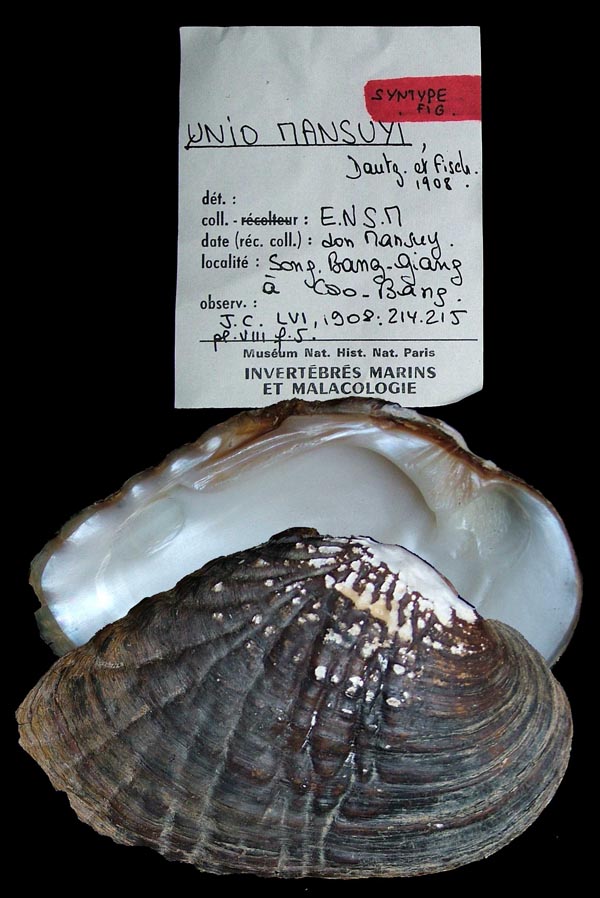 SYNTYPE
FIG.
UNIO MANSUYI,
Dautz. et Fisch.
1908.
dét. :
coll. - récolteur : E.N.S.M
date (réc. coll.) : don Mansuy.
localité : Song. Bang-Giang
à Cao-Bang.
observ. :
J.C. LVI, 1908: 214.215
pl. VIII f. 5.
Muséum Nat. Hist. Nat. Paris
INVERTÉBRÉS MARINS
ET MALACOLOGIE